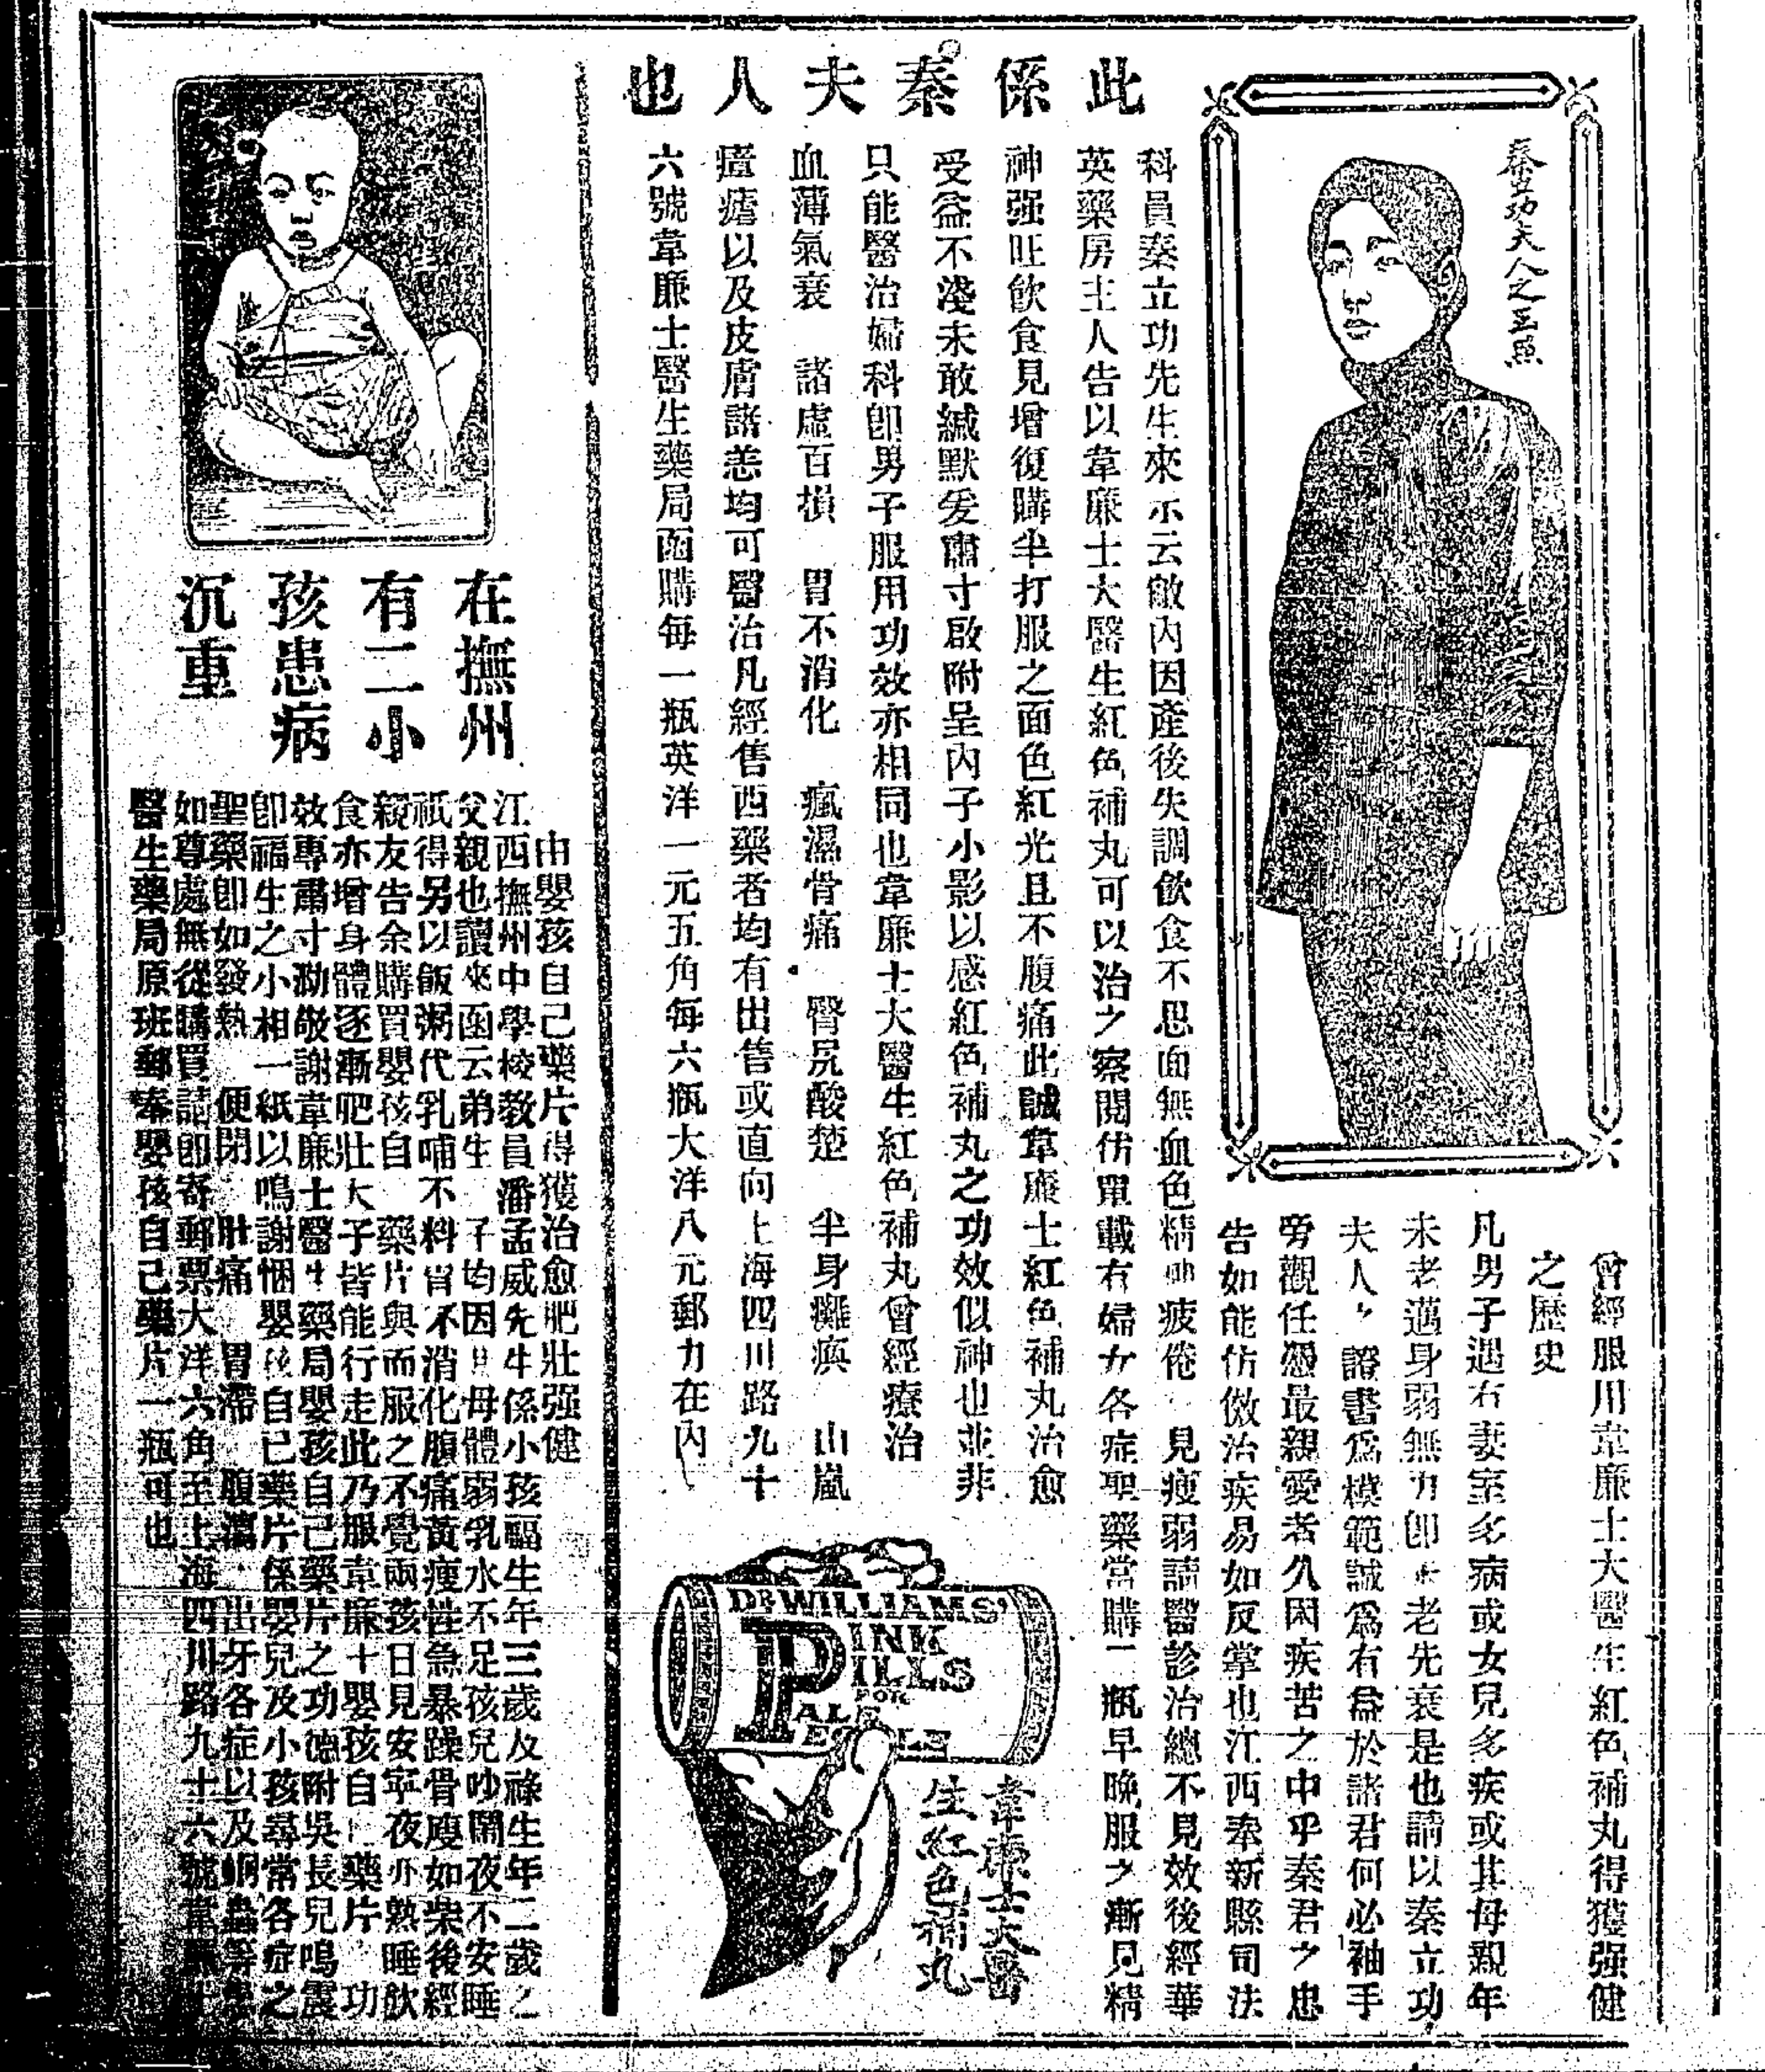 此係秦夫人也
秦立功夫人之玉照
曾經服用韋廉士大醫生紅色補丸得獲强健
之歷史
凡男子遇有妻室多病或女兒多疾或其母親年
未老邁身弱無力卽未老先衰是也請以秦立功
夫人之證書爲模範誠爲有益於諸君何必袖手
旁觀任憑最親愛者久困疾苦之中乎秦君之忠
告如能仿傚治疾易如反掌也江西奉新縣司法
科員秦立功先生來示云敝內因產後失調飮食不思面無血色精神疲倦 見瘦弱請醫診治總不見效後經華
英藥房主人告以韋廉士大醫生紅色補丸可以治之察閱仿單載有婦女各症聖藥當購一瓶早晚服之漸見精
神强旺飮食見增復購半打服之面色紅光且不腹痛此誠韋廉士紅色補丸治愈
受益不淺未敢緘默爰肅寸啟附呈內子小影以感紅色補丸之功效似神也並非
只能醫治婦科卽男子服用功效亦相同也韋廉士大醫生紅色補丸曾經療治
血薄氣衰 諸虛百損 胃不消化 瘋濕骨痛 腎尻酸楚 半身癱瘓 山嵐
瘴瘧以及皮膚諸恙均可醫治凡經售西藥者均有出售或直向上海四川路九十
六號韋廉士醫生藥局函購每一瓶英洋一元五角每六瓶大洋八元郵力在內
DR WILLIAMS'
PINK
PILLS
FOR
PALE
PEOPLE
韋廉士大醫
生紅色補丸
在撫州
有二小
孩患病
沉重
由嬰孩自己藥片得獲治愈肥壯强健
江西撫州中學校敎員潘孟威先生係小孩福生年三歲及祿生年二歲之
父親也讀來函云弟生 子均因其母體弱乳水不足孩兒吵鬧夜不安睡
祇得另以飯粥代乳哺不料胃不消化腹痛黃瘦性急暴躁骨瘦如柴後經
親友告余購買嬰孩自 藥片與而服之不覺兩孩日見安寧夜亦熟睡飮
食亦增身體逐漸肥壯大子皆能行走此乃服韋廉士嬰孩自 藥片 功
效專肅寸泐敬謝韋廉士醫生藥局嬰孩自己藥片之功德附吳長兒鳴震
卽福生之小相一紙以鳴謝悃嬰孩自己藥片係嬰兒及小孩尋常各症之
聖藥卽如發熱 便閉 肚痛 胃滯 腹瀉 出牙各症以及蛔蟲等
如尊處無從購買請卽寄郵票大洋六角至上海四川路九十六號韋廉士
醫生藥局原班郵奉嬰孩自己藥片一瓶可也